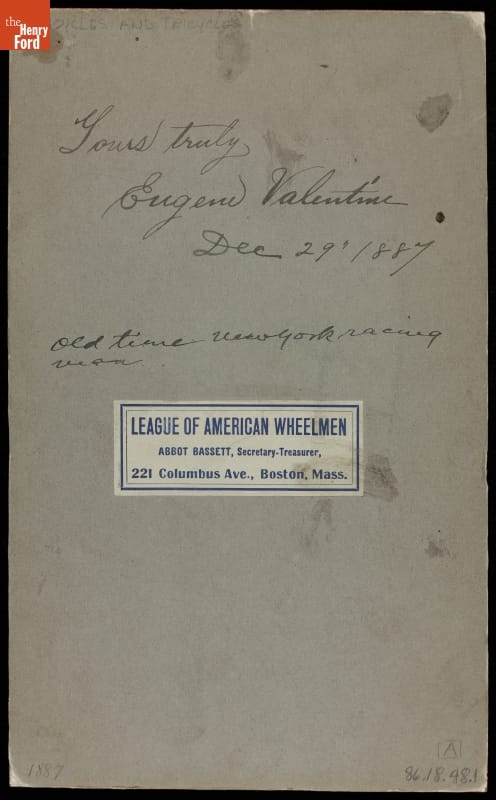 the
Henry
Ford
BICYCLES AND TRICYCLES
Yours truly
Eugene Valentine
Dec 29" 1887
old time New York racing
man.
LEAGUE OF AMERICAN WHEELMEN
ABBOT BASSETT, Secretary-Treasurer,
221 Columbus Ave., Boston, Mass.
[A]
1887
86.18.48.1